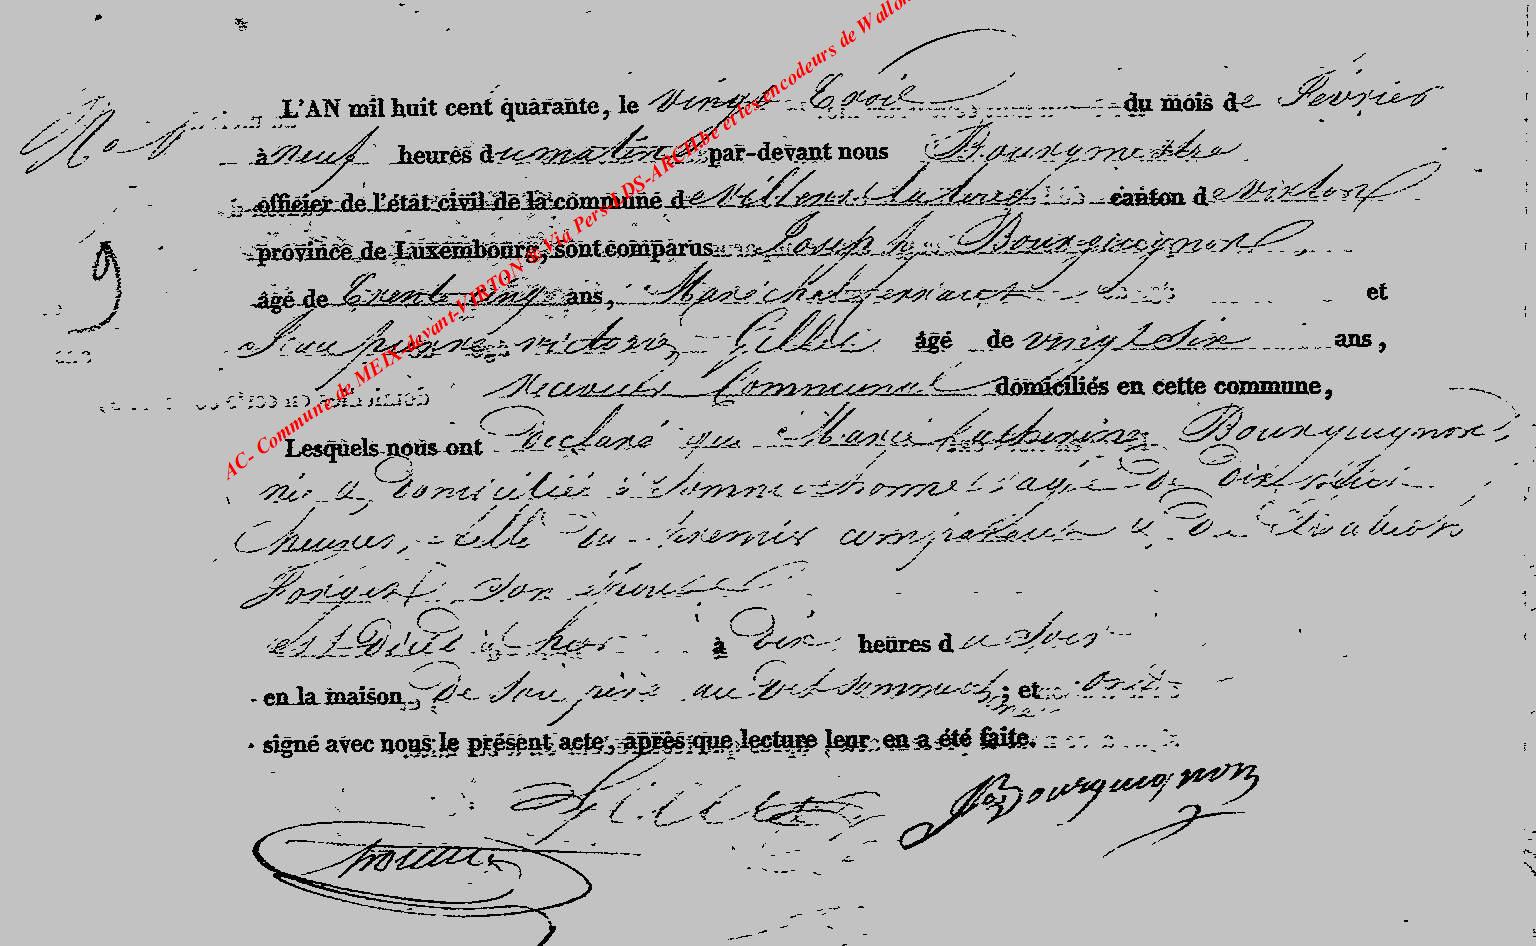 L'AN mil huit cent quarante, le vingt Trois du mois de Février
à neuf heures du matin par-devant nous Bourgmestre
officier de l'état civil de la commune de Villers la loue canton de virton
province de Luxembourg, sont comparus Joseph Bourguignon,
âgé de Trente cinq ans, Maréchal ferrant et
Jean pierre victorin Gillet âgé de vingt six ans,
receveur Communal domiciliés en cette commune,
Lesquels nous ont Déclaré que Marie Catherine Bourguignon,
née & Domiciliée à Sommethonne agée De Dix
heures, fille Du premier comparant & De
son épouse
est Décédée hier à Dix heures du soir
en la maison De son père au dit Sommeth; et ont
signé avec nous le présent acte, après que lecture leur en a été faite.
Gillet JBourguignon
AC- Commune de MEIX-devant-VIRTON & Via Pers LDS-ARCH.be et les encodeurs de Wallon